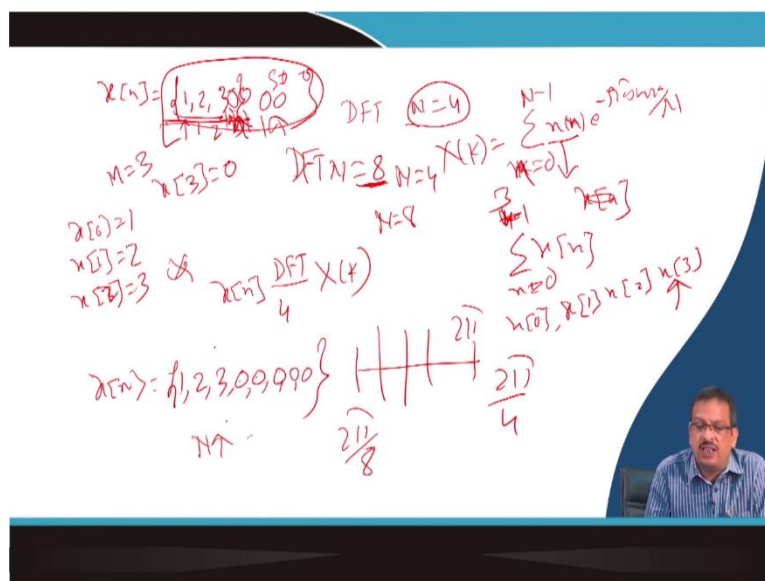 x[n]= {1, 2, 3 0 0 0 0
DFT N=4
N-1
X(k)= ∑ x(n) e
n=0
M=3 x[3]=0 DFT N=8 N=4
N=8
x[0]=1
x[1]=2
x[2]=3
x[n] DFT X(k)
4
3
∑ x[n]
n=0
x[0], x[1] x[2] x(3)
x[n]= {1, 2, 3, 0, 0, 0, 0, 0}
2π
2π/8
2π/4
N↑